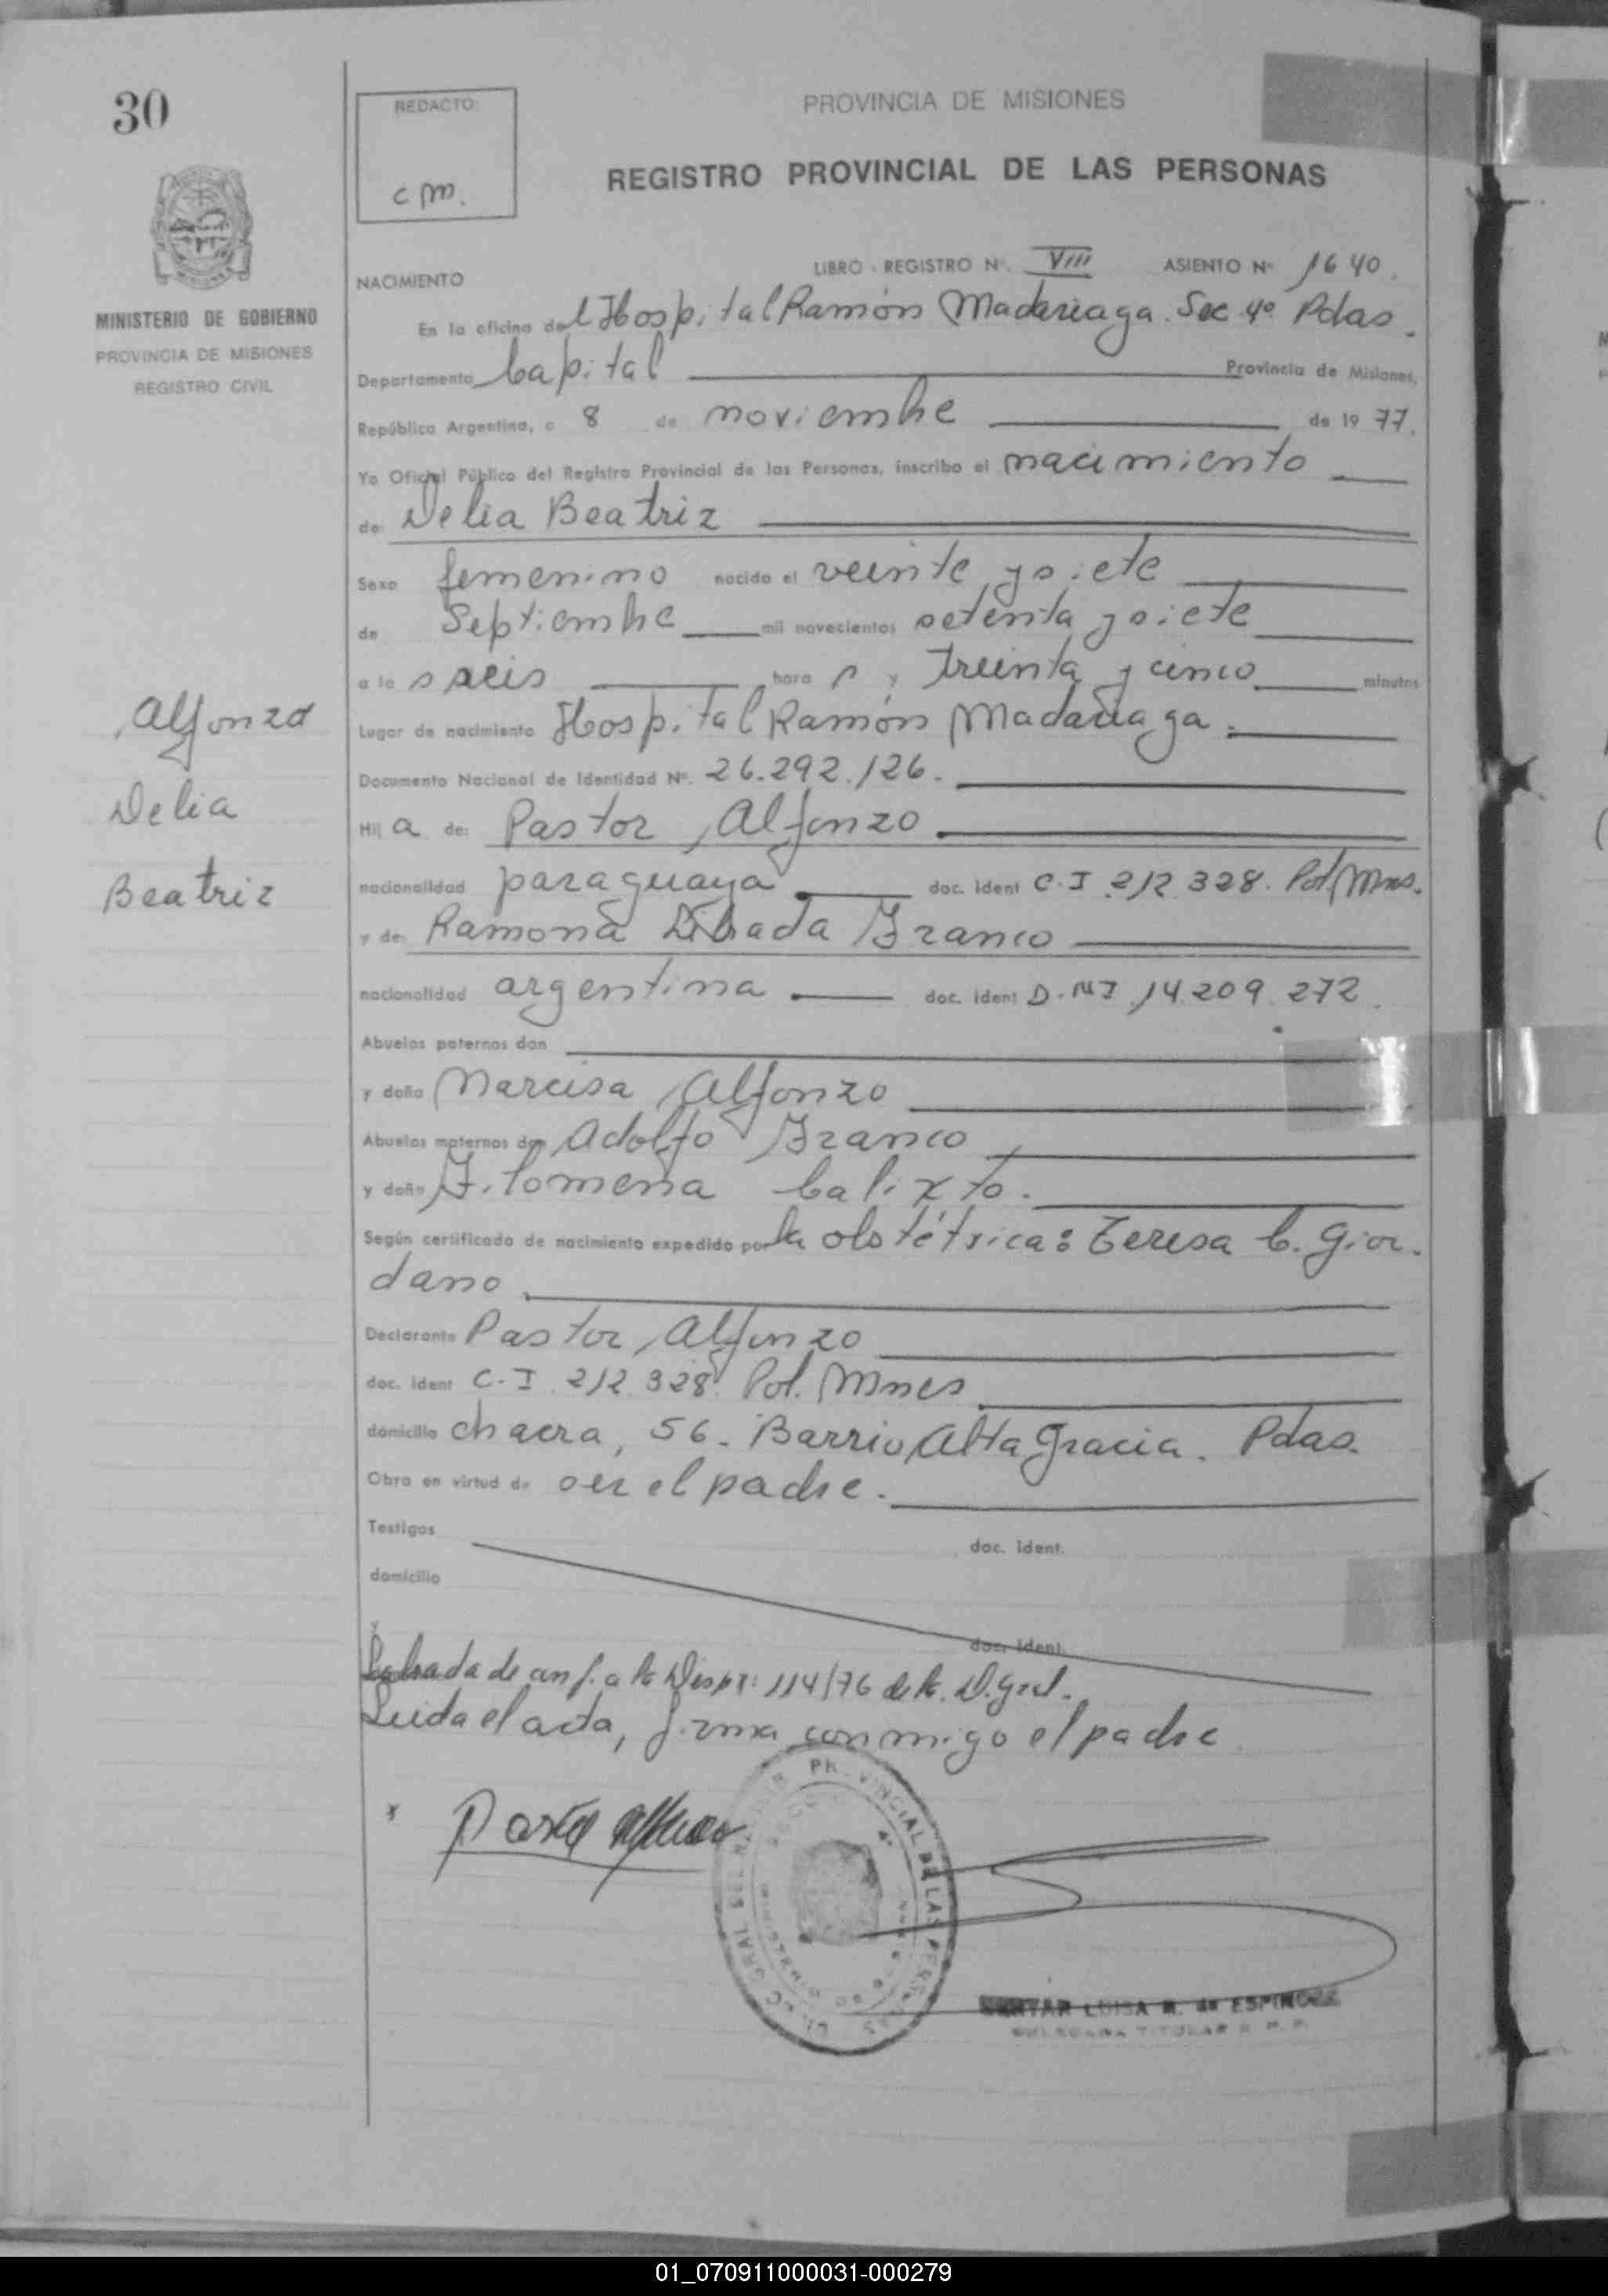 30
REDACTO:
c m.
PROVINCIA DE MISIONES
REGISTRO PROVINCIAL DE LAS PERSONAS
MINISTERIO DE GOBIERNO
PROVINCIA DE MISIONES
REGISTRO CIVIL
NACIMIENTO
LIBRO - REGISTRO Nº. VIII ASIENTO Nº 1640.
En la oficina del Hospital Ramón Madariaga. Sec 4º Pdas.
Departamento Capital Provincia de Misiones,
República Argentina, a 8 de noviembre de 19 77.
Yo Oficial Público del Registro Provincial de las Personas, inscribo el nacimiento
de: Delia Beatriz
Sexo femenino nacido el veinte y siete
de Septiembre mil novecientos setenta y siete
a la s seis hora s y treinta y cinco minutos
Lugar de nacimiento Hospital Ramón Madariaga.
Documento Nacional de Identidad Nº. 26.292.126.
Hij a de: Pastor Alfonzo.
nacionalidad paraguaya doc. ident C.I 212.328. Pol. Mnes.
y de: Ramona Franco
nacionalidad argentina doc. ident D.NI 14.209.272.
Abuelos paternos don
y doña Narcisa Alfonzo
Abuelos maternos don Adolfo Franco
y doña Filomena Calixto.
Según certificado de nacimiento expedido por la obstétrica: Teresa C. Gior-
dano
Declarante Pastor Alfonzo
doc. ident C.I 212.328 Pol. Mnes
domicilio chacra, 56. Barrio Alta Gracia. Pdas.
Obra en virtud de ser el padre.
Testigos doc. ident.
domicilio
y
doc. ident.
Labrada de conf. a la Disp: 114/76 de la D. Gral.
Leida el acta, firma conmigo el padre
x Pastor Alfonzo
Alfonzo
Delia
Beatriz
PROVINCIAL DE LAS PERSONAS
LUISA M. de ESPINOZA
TITULAR
01_070911000031-000279